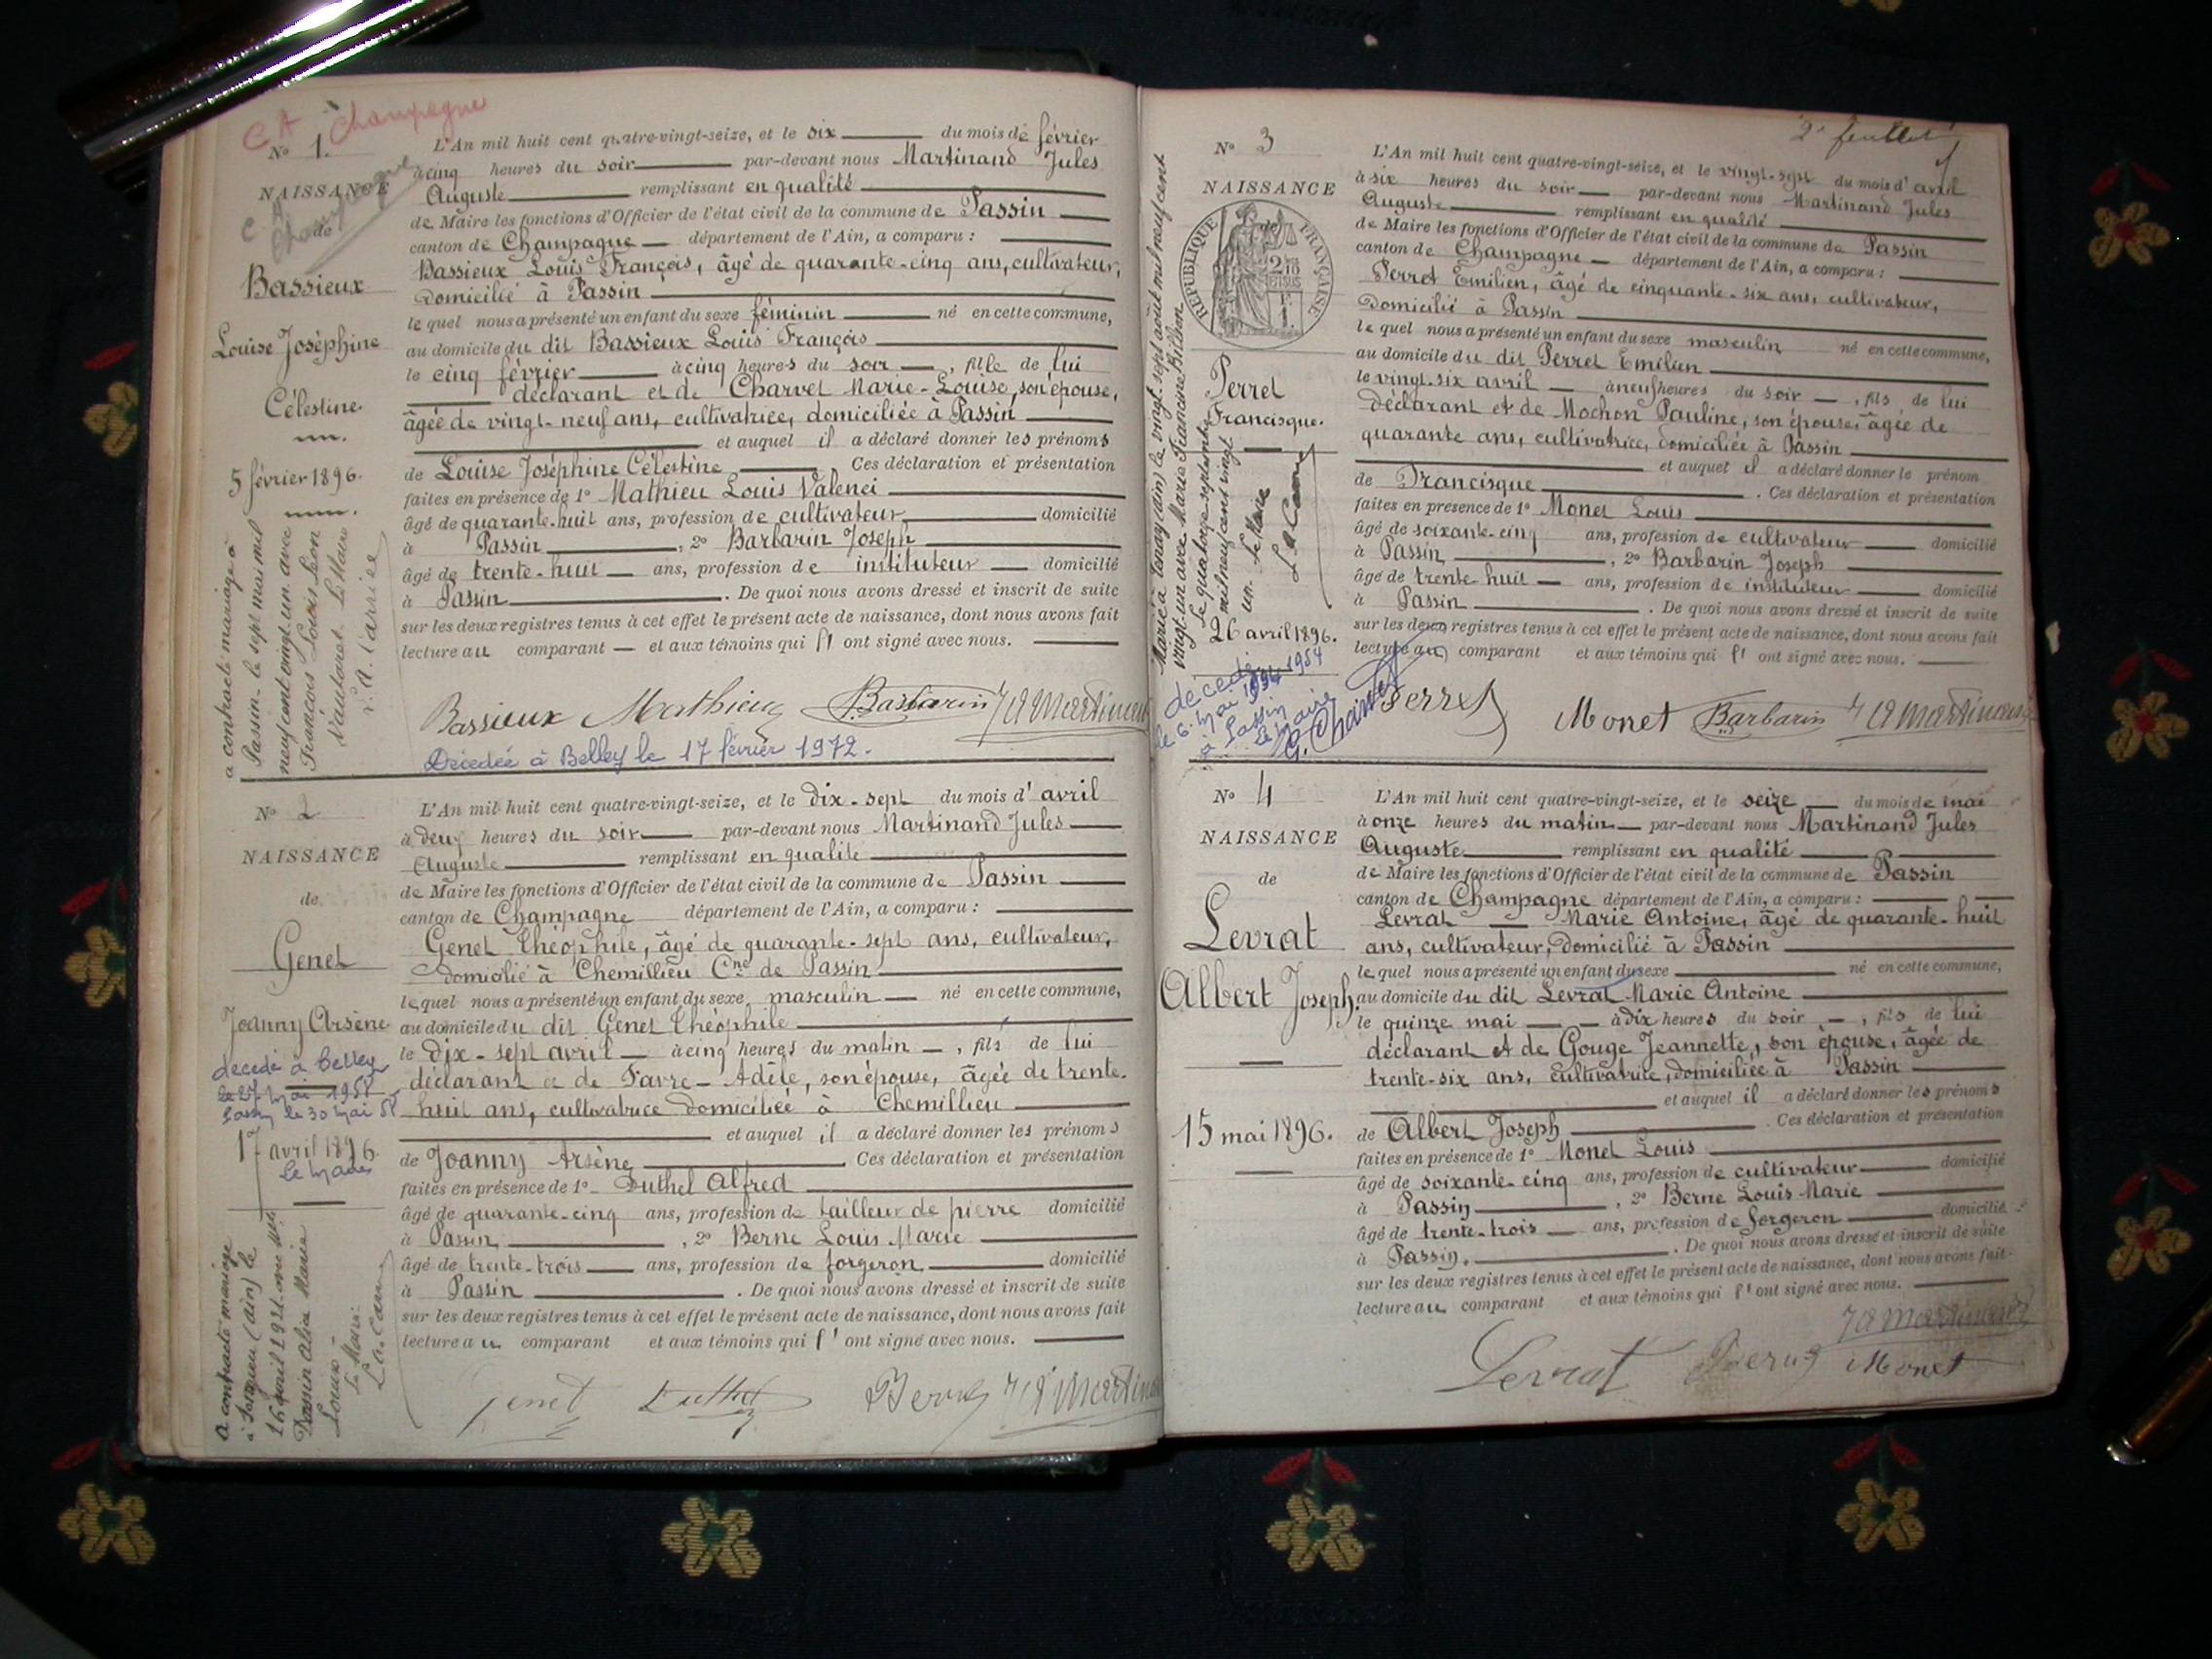 CA à Champagne
No 1.
NAISSANCE
de
Bassieux
Louise Joséphine
Célestine.
5 février 1896.
a contracté mariage à
Passin le sept mai mil
neuf cent vingt un avec
François Louis Léon
Vautaret Le Maire
L'An mil huit cent quatre-vingt-seize, et le six du mois de février
à cinq heures du soir par-devant nous Martinand Jules
Auguste remplissant en qualité
de Maire les fonctions d'Officier de l'état civil de la commune de Passin
canton de Champagne département de l'Ain, a comparu :
Bassieux Louis François, âgé de quarante-cinq ans, cultivateur,
domicilié à Passin
le quel nous a présenté un enfant du sexe féminin né en cette commune,
au domicile du dit Bassieux Louis François
le cinq février à cinq heures du soir , fille de lui
déclarant et de Charvet Marie-Louise, son épouse,
âgée de vingt-neuf ans, cultivatrice, domiciliée à Passin
et auquel il a déclaré donner les prénoms
de Louise Joséphine Célestine Ces déclaration et présentation
faites en présence de 1o Mathieu Louis Valenci
âgé de quarante-huit ans, profession de cultivateur domicilié
à Passin , 2o Barbarin Joseph
âgé de trente-huit ans, profession de instituteur domicilié
à Passin . De quoi nous avons dressé et inscrit de suite
sur les deux registres tenus à cet effet le présent acte de naissance, dont nous avons fait
lecture au comparant et aux témoins qui l' ont signé avec nous.
Bassieux Mathieu Barbarin JA Martinand
Décédée à Belley le 17 février 1972.
No 2
NAISSANCE
de
Genet
Joanny Arsène
decede à Belley
le 27 mai 1958
le 30 mai 58
17 avril 1896.
le maire
a contracté mariage
(Ain) le
16 avril 1921
Marie
Louise
Le Maire
L'An mil huit cent quatre-vingt-seize, et le dix-sept du mois d'avril
à deux heures du soir par-devant nous Martinand Jules
Auguste remplissant en qualité
de Maire les fonctions d'Officier de l'état civil de la commune de Passin
canton de Champagne département de l'Ain, a comparu :
Genet Théophile, âgé de quarante-sept ans, cultivateur,
domicilié à Chemillieu Cne de Passin
le quel nous a présenté un enfant du sexe masculin né en cette commune,
au domicile du dit Genet Théophile
le dix-sept avril à cinq heures du matin , fils de lui
déclarant et de Favre Adèle, son épouse, âgée de trente-
huit ans, cultivatrice domiciliée à Chemillieu
et auquel il a déclaré donner les prénoms
de Joanny Arsène Ces déclaration et présentation
faites en présence de 1o Duthel Alfred
âgé de quarante-cinq ans, profession de tailleur de pierre domicilié
à Passin , 2o Berne Louis Marie
âgé de trente-trois ans, profession de forgeron domicilié
à Passin . De quoi nous avons dressé et inscrit de suite
sur les deux registres tenus à cet effet le présent acte de naissance, dont nous avons fait
lecture au comparant et aux témoins qui l' ont signé avec nous.
Genet Duthel Berne JA Martinand
2e feuillet
No 3
NAISSANCE
de
REPUBLIQUE FRANÇAISE
Perret
Francisque.
26 avril 1896.
le vingt-sept août mil neuf cent
vingt-un avec Marie Francine
Le quatorze septembre
mil neuf cent vingt
un. Le Maire
décédé
le 6 mai 1954
à Passin
Le Maire
L'An mil huit cent quatre-vingt-seize, et le vingt-sept du mois d'avril
à six heures du soir par-devant nous Martinand Jules
Auguste remplissant en qualité
de Maire les fonctions d'Officier de l'état civil de la commune de Passin
canton de Champagne département de l'Ain, a comparu :
Perret Emilien, âgé de cinquante-six ans, cultivateur,
domicilié à Passin
le quel nous a présenté un enfant du sexe masculin né en cette commune,
au domicile du dit Perret Emilien
le vingt-six avril à neuf heures du soir , fils de lui
déclarant et de Mochon Pauline, son épouse, âgée de
quarante ans, cultivatrice, domiciliée à Passin
et auquel il a déclaré donner le prénom
de Francisque . Ces déclaration et présentation
faites en présence de 1o Monet Louis
âgé de soixante-cinq ans, profession de cultivateur domicilié
à Passin , 2o Barbarin Joseph
âgé de trente-huit ans, profession de instituteur domicilié
à Passin . De quoi nous avons dressé et inscrit de suite
sur les deux registres tenus à cet effet le présent acte de naissance, dont nous avons fait
lecture au comparant et aux témoins qui l' ont signé avec nous.
Perret Monet Barbarin JA Martinand
No 4
NAISSANCE
de
Levrat
Albert Joseph.
15 mai 1896.
L'An mil huit cent quatre-vingt-seize, et le seize du mois de mai
à onze heures du matin par-devant nous Martinand Jules
Auguste remplissant en qualité
de Maire les fonctions d'Officier de l'état civil de la commune de Passin
canton de Champagne département de l'Ain, a comparu :
Levrat Marie Antoine, âgé de quarante-huit
ans, cultivateur, domicilié à Passin
le quel nous a présenté un enfant du sexe né en cette commune,
au domicile du dit Levrat Marie Antoine
le quinze mai à dix heures du soir , fils de lui
déclarant et de Gouge Jeannette, son épouse, âgée de
trente-six ans, cultivatrice, domiciliée à Passin
et auquel il a déclaré donner les prénoms
de Albert Joseph . Ces déclaration et présentation
faites en présence de 1o Monet Louis
âgé de soixante-cinq ans, profession de cultivateur domicilié
à Passin , 2o Berne Louis Marie
âgé de trente-trois ans, profession de forgeron domicilié
à Passin. . De quoi nous avons dressé et inscrit de suite
sur les deux registres tenus à cet effet le présent acte de naissance, dont nous avons fait
lecture au comparant et aux témoins qui l' ont signé avec nous.
JA Martinand
Levrat Berne Monet